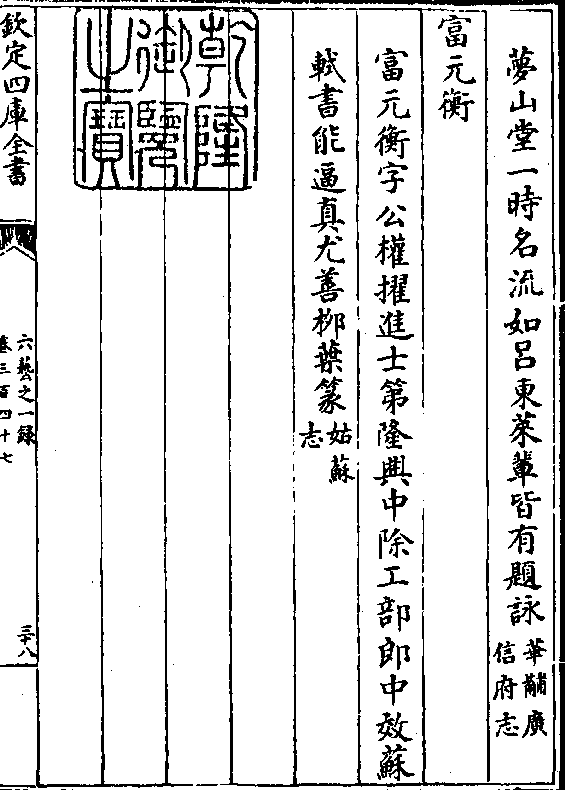 夢山堂一時名流如呂東萊輩皆有題詠華黼廣信府志
富元衡
富元衡字公權擢進士第隆興中除工部郎中效蘇
軾書能逼真尤善栁葉篆姑蘇志
乾隆御覽之寶
欽定四庫全書
六藝之一録
卷三百四十七
三十八